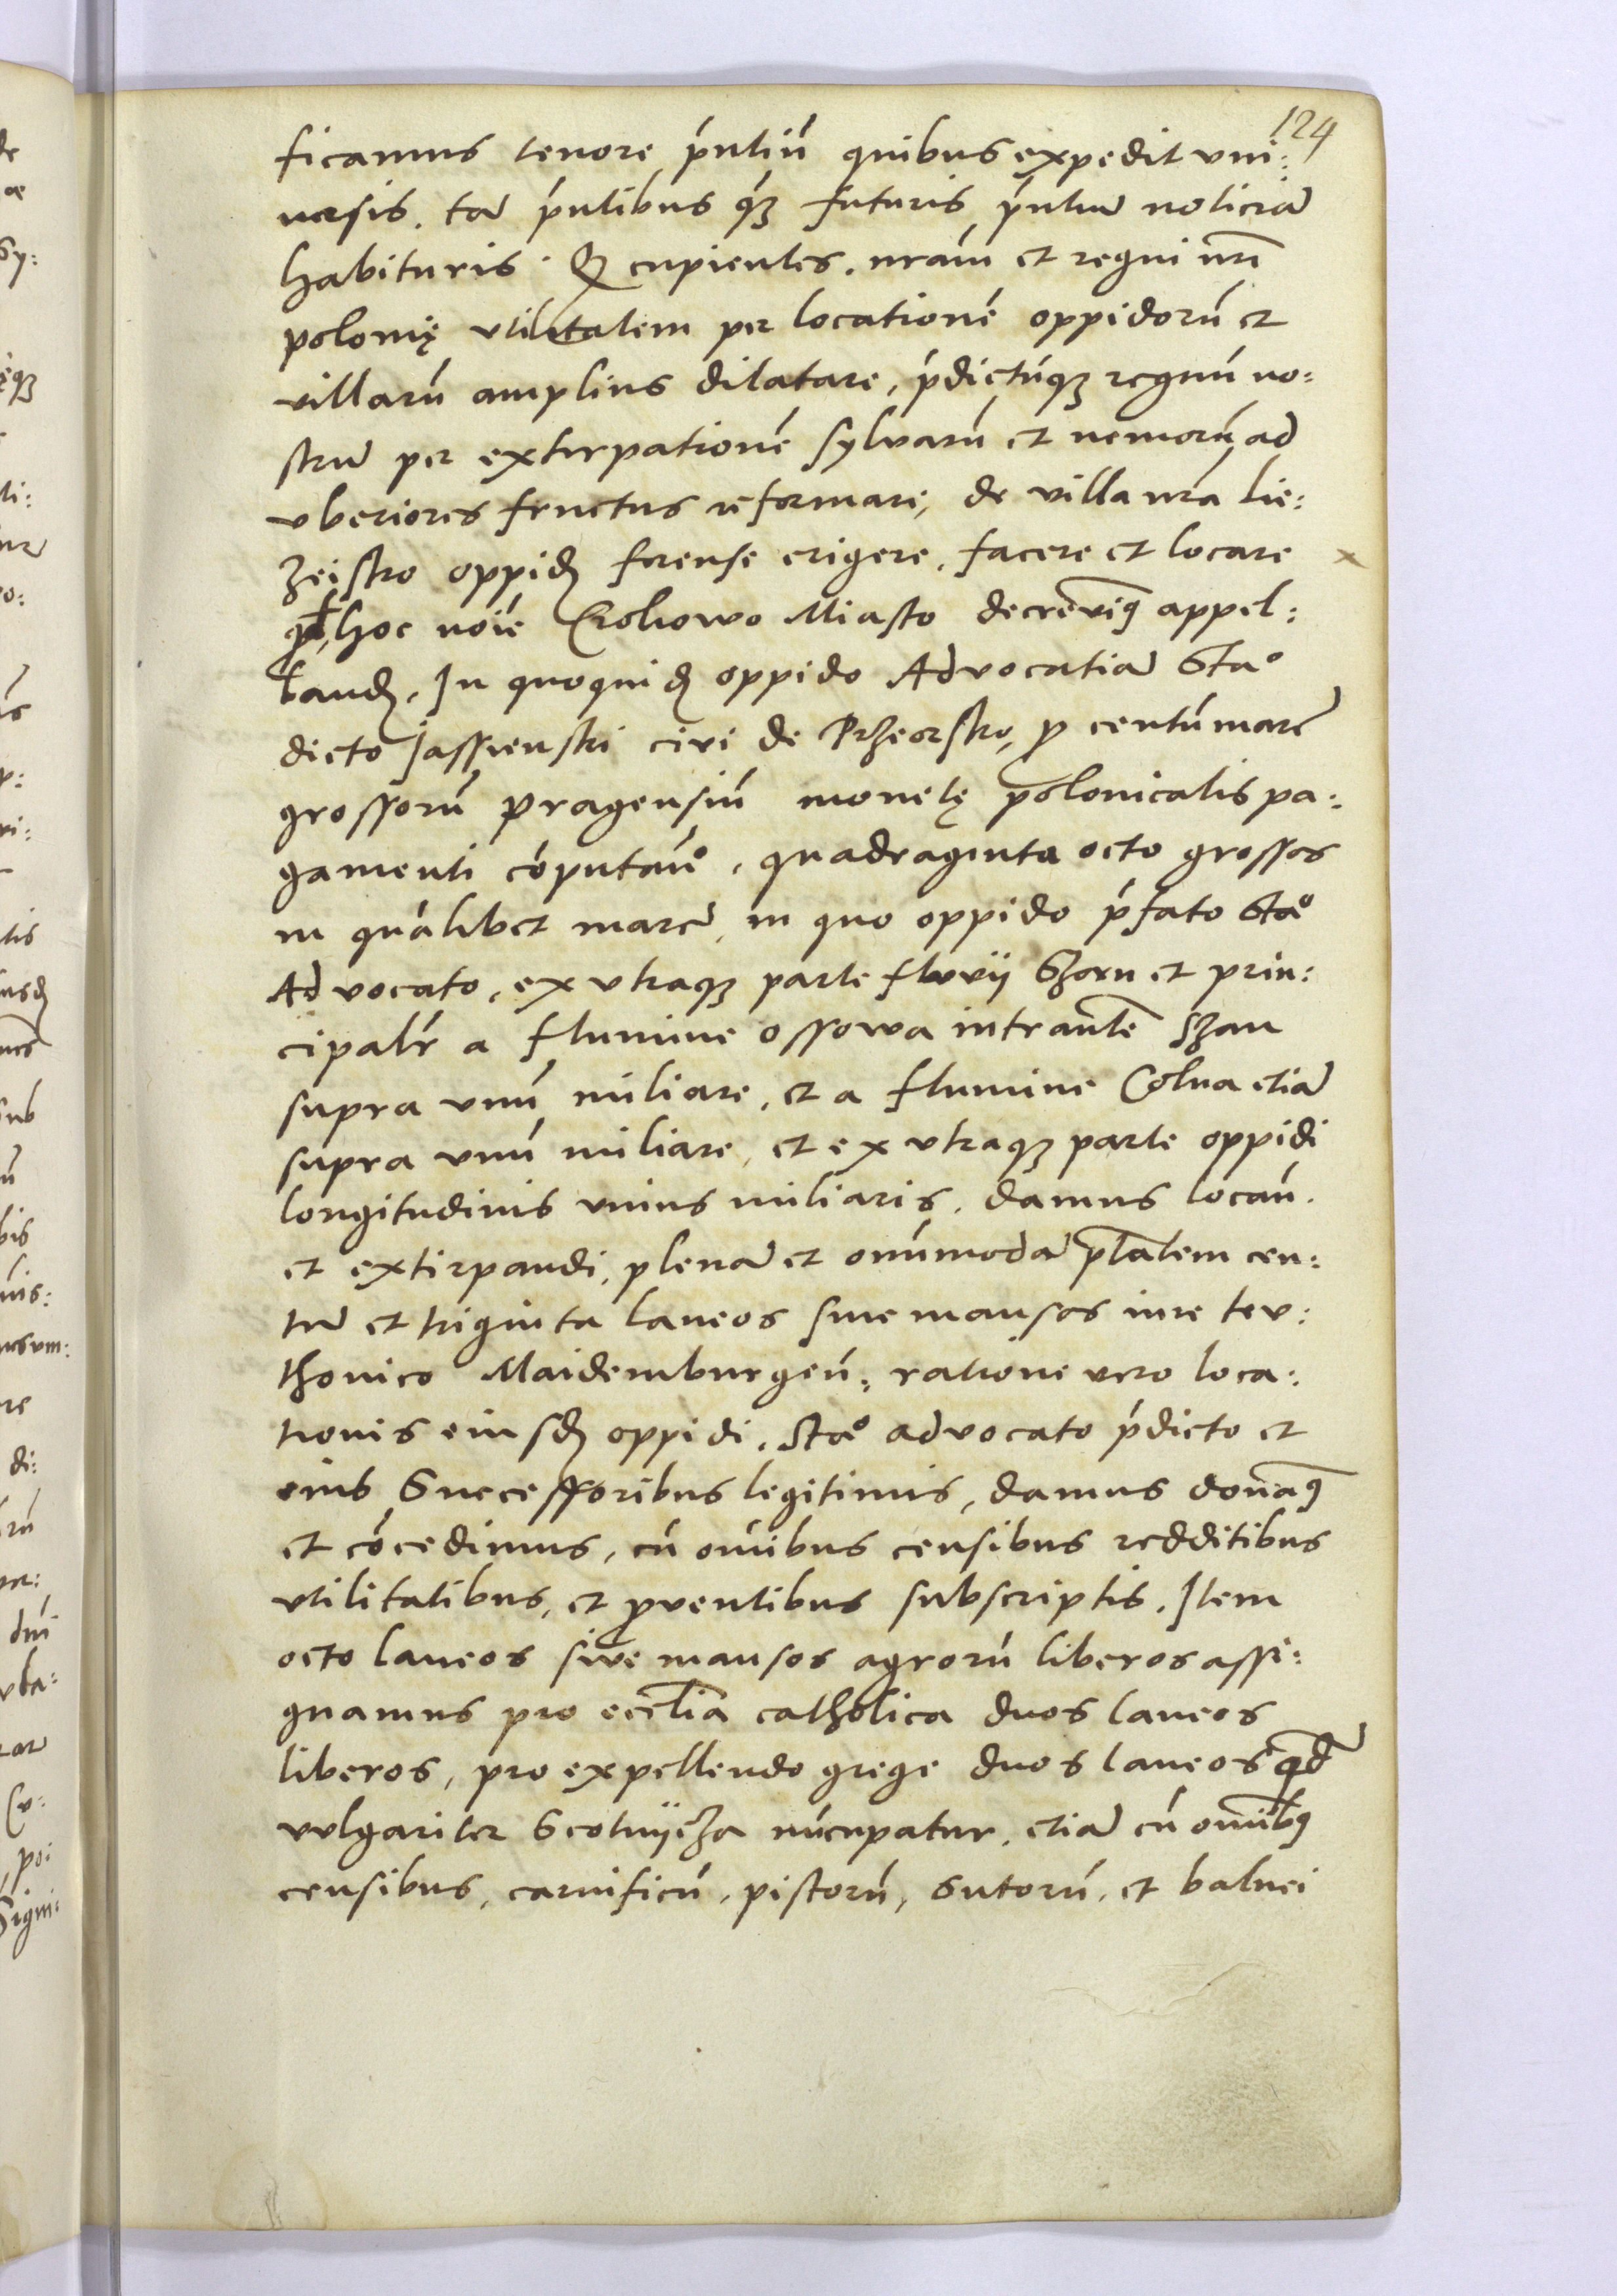 124
ficamus tenore pńtiū quibus expedit vni:
uersis. tā pńtibus q́ꝫ futuris pńtiū noticiā
habituris. Q cupientes. nram̄ et regni nr̄i
polonię vtilitatem per locationē oppidorū et
villarū amplius dilatare, p̄dictūqꝫ regnū no:
strū per extirpationē sylvarū et nemorū ad
vberiores fructus reformare, de villa nr̄a Lie:
zeisko oppidꝫ forense erigere, facere et locare
qd́ hoc noīe Krolowo Miasto decrevimꝰ appel:
landꝫ. In quoquidꝫ oppido Advocatiā Staº
dicto Jassienski civi de Przeorsko, ꝓ centū marc̄
grossorū pragensiū monetę polonicalis pa:
gamenti cōputanº, quadraginta octo grossos
in quālibet marcā, in quo oppido p̄fato Staº
Advocato, ex vtraqꝫ parte fluvii Szoru et prin:
cipalr̄ a flumine ossowa intrantē Szan
supra vnū miliare, et a flumine Colna etiā
supra vnū miliare, et ex vtraqꝫ parte oppidi
longitudinis vnius miliaris, damus locan̄.
et extirpandi, plenā et om̄imodā p̄tatem cen:
tū et triginta laneos siue mansos iure teu:
thonico Maidemburgeń: ratione vero loca:
tionis eiusdꝫ oppidi. Staº advocato p̄dicto et
eius Successoribus legitimis, damus donamꝰ
et cōcedimus, cū om̄ibus censibus redditibus
vtilitatibus, et ꝓventibus subscriptis. Item
octo laneos sive mansos agrorū liberos assi:
gnamus pro eccl̄ia catholica duos laneos
liberos, pro expellendo grege duos laneos qd̄
vulgariter Scotnijcza nūcupatur, etiā cū om̄ibꝰ
censibus, carnificū, pistorū, sutorū, et balnei